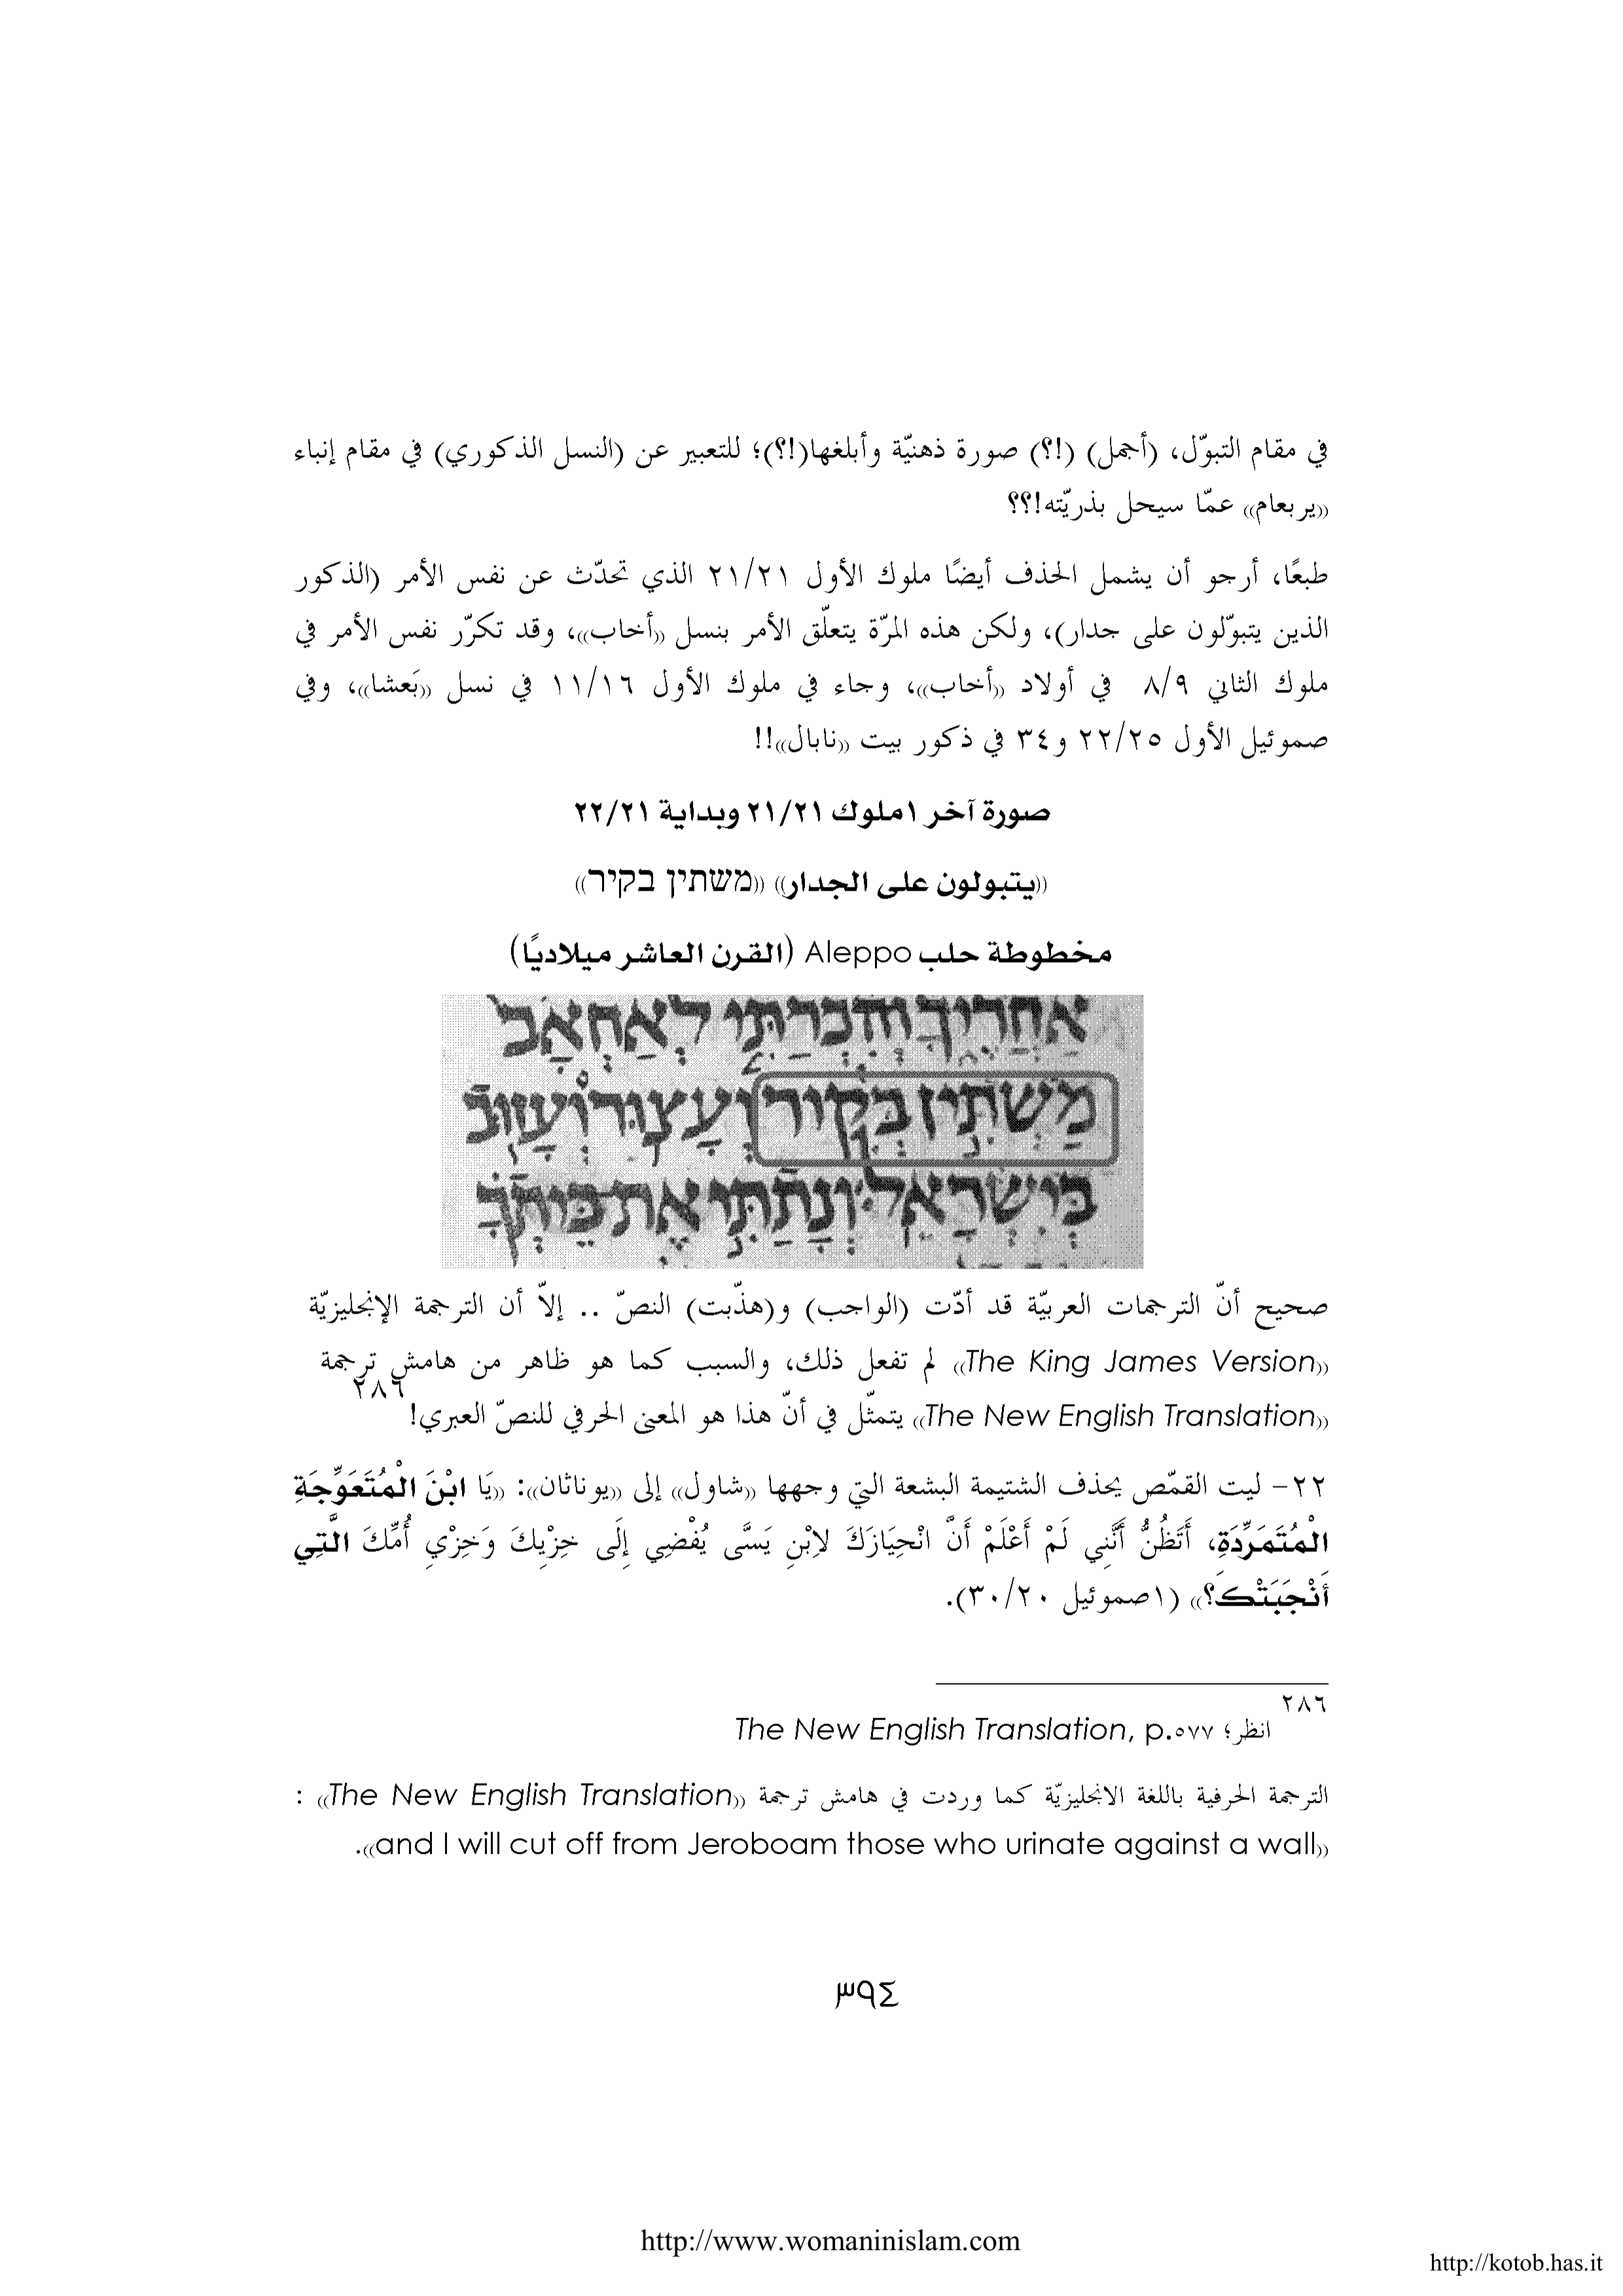 في مقام التبوّل، (أجمل) (!؟) صورة ذهنيّة وأبلغها(!؟)؛ للتعبير عن (النسل الذكوري) في مقام إنباء
((يربعام)) عمّا سيحل بذريّته!؟؟
طبعًا، أرجو أن يشمل الحذف أيضًا ملوك الأول ٢١/٢١ الذي تحدّث عن نفس الأمر (الذكور
الذين يتبوّلون على جدار)، ولكن هذه المرّة يتعلّق الأمر بنسل ((أخاب))، وقد تكرّر نفس الأمر في
ملوك الثاني ٨/٩ في أولاد ((أخاب))، وجاء في ملوك الأول ١١/١٦ في نسل ((بَعشا))، وفي
صموئيل الأول ٢٢/٢٥ و٣٤ في ذكور بيت ((نابال))!!
صورة آخر ١ملوك ٢١/٢١ وبداية ٢٢/٢١
((يتبولون على الجدار)) ((משתין בקיר))
مخطوطة حلب Aleppo (القرن العاشر ميلاديًا)
אַחֲרֶיךָ וְהִכְרַתִּי לְאַחְאָב
מַשְׁתִּין בְּקִיר וְעָצוּר וְעָזוּב
בְּיִשְׂרָאֵל׃ וְנָתַתִּי אֶת בֵּיתְךָ
صحيح أنّ الترجمات العربيّة قد أدّت (الواجب) و(هذّبت) النصّ .. إلاّ أن الترجمة الإنجليزيّة
((The King James Version)) لم تفعل ذلك، والسبب كما هو ظاهر من هامش ترجمة
((The New English Translation))٢٨٦ يتمثّل في أنّ هذا هو المعنى الحرفي للنصّ العبري!
٢٢- ليت القمّص يحذف الشتيمة البشعة التي وجهها ((شاول)) إلى ((يوناثان)): ((يَا ابْنَ الْمُتَعَوِّجَةِ
الْمُتَمَرِّدَةِ، أَتَظُنُّ أَنَّنِي لَمْ أَعْلَمْ أَنَّ انْحِيَازَكَ لاِبْنِ يَسَّى يُفْضِي إِلَى خِزْيِكَ وَخِزْيِ أُمِّكَ الَّتِي
أَنْجَبَتْكَ؟)) (١صموئيل ٣٠/٢٠).
٢٨٦ انظر؛ The New English Translation, p.٥٧٧
الترجمة الحرفية باللغة الانجليزيّة كما وردت في هامش ترجمة ((The New English Translation)) :
((and I will cut off from Jeroboam those who urinate against a wall)).
٣٩٤
http://www.womaninislam.com
http://kotob.has.it